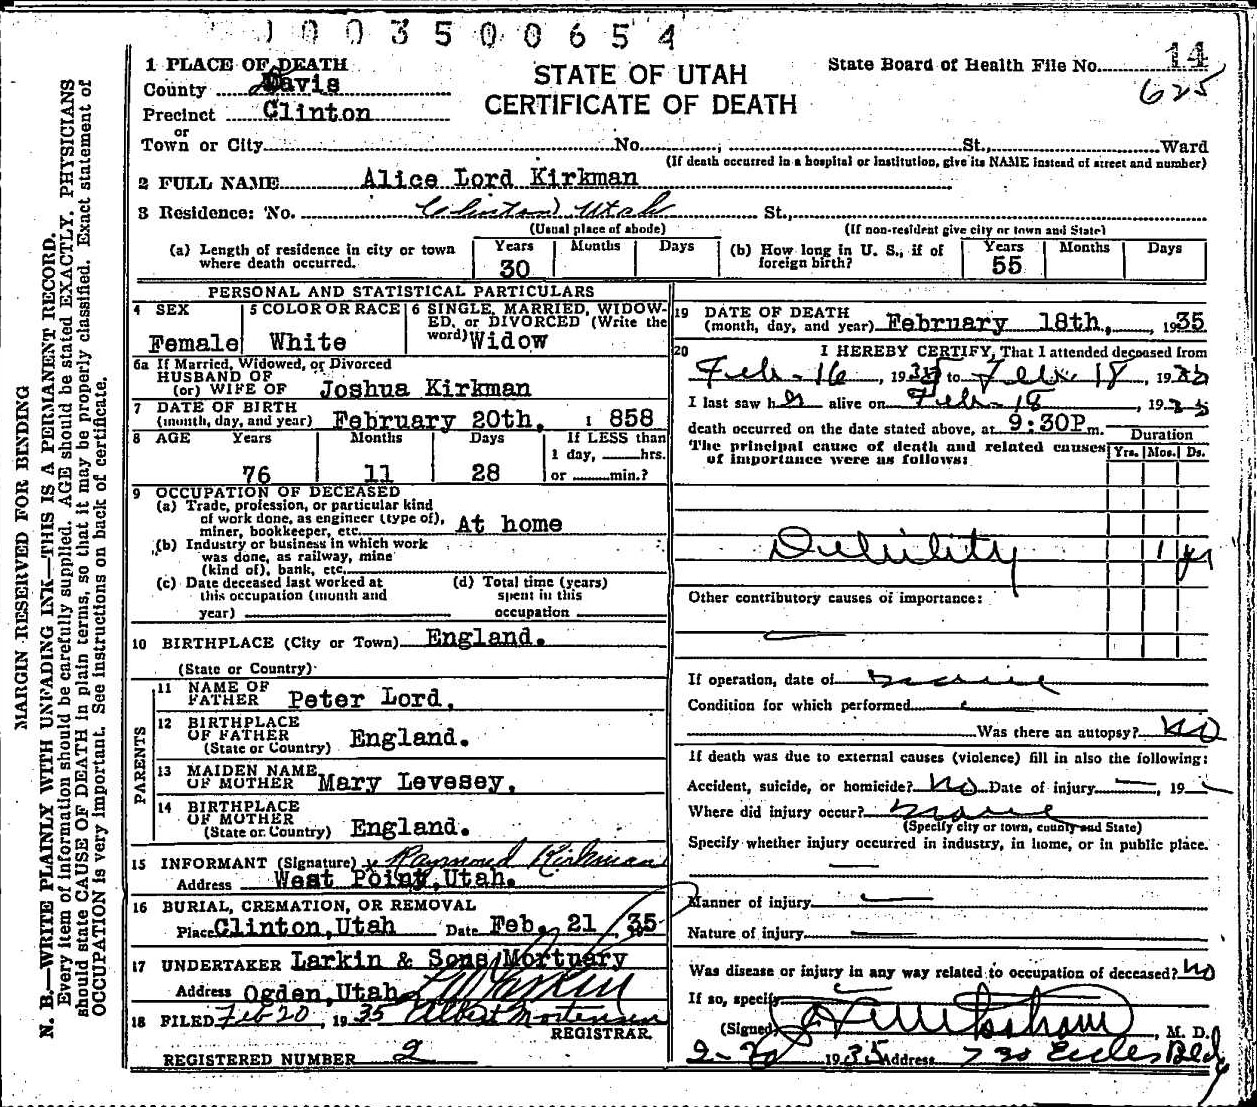 1003500654
1 PLACE OF DEATH
County Davis
Precinct Clinton
or
Town or City No. St., Ward
STATE OF UTAH
CERTIFICATE OF DEATH
State Board of Health File No. 14
625
(If death occurred in a hospital or institution, give its NAME instead of street and number)
2 FULL NAME Alice Lord Kirkman
3 Residence: No. Clinton Utah St.,
(Usual place of abode) (If non-resident give city or town and State)
(a) Length of residence in city or town where death occurred. Years 30 Months Days
(b) How long in U. S., if of foreign birth? Years 55 Months Days
PERSONAL AND STATISTICAL PARTICULARS
4 SEX Female
5 COLOR OR RACE White
6 SINGLE, MARRIED, WIDOW-
ED, or DIVORCED (Write the
word) Widow
6a If Married, Widowed, or Divorced
HUSBAND OF
(or) WIFE OF Joshua Kirkman
7 DATE OF BIRTH
(month, day, and year) February 20th, 1858
8 AGE Years 76 Months 11 Days 28 If LESS than
1 day, hrs.
or min.?
9 OCCUPATION OF DECEASED
(a) Trade, profession, or particular kind
of work done, as engineer (type of),
miner, bookkeeper, etc. At home
(b) Industry or business in which work
was done, as railway, mine
(kind of), bank, etc.
(c) Date deceased last worked at
this occupation (month and
year)
(d) Total time (years)
spent in this
occupation
10 BIRTHPLACE (City or Town) England.
(State or Country)
PARENTS
11 NAME OF
FATHER Peter Lord,
12 BIRTHPLACE
OF FATHER
(State or Country) England.
13 MAIDEN NAME
OF MOTHER Mary Levesey,
14 BIRTHPLACE
OF MOTHER
(State or Country) England.
15 INFORMANT (Signature) x Raymond Kirkman
Address West Point, Utah.
16 BURIAL, CREMATION, OR REMOVAL
Place Clinton, Utah Date Feb. 21, 35
17 UNDERTAKER Larkin & Sons Mortuary
Address Ogden, Utah
18 FILED Feb 20, 1935 Albert Mortensen
REGISTRAR.
REGISTERED NUMBER 2
19 DATE OF DEATH
(month, day, and year) February 18th, 1935
20 I HEREBY CERTIFY, That I attended deceased from
Feb-16, 1935 to Feb 18, 1935
I last saw her alive on Feb-18, 1935
death occurred on the date stated above, at 9:30P m.
The principal cause of death and related causes
of importance were as follows:
Duration
Yrs. Mos. Ds.
Debility 1 yr
Other contributory causes of importance:
If operation, date of none
Condition for which performed
Was there an autopsy? No
If death was due to external causes (violence) fill in also the following:
Accident, suicide, or homicide? No Date of injury , 19
Where did injury occur? none
(Specify city or town, county and State)
Specify whether injury occurred in industry, in home, or in public place.
Manner of injury
Nature of injury
Was disease or injury in any way related to occupation of deceased? No
If so, specify
(Signed) , M. D.
2-20 1935 Address 730 Eccles Bldg
MARGIN RESERVED FOR BINDING
N. B.—WRITE PLAINLY WITH UNFADING INK—THIS IS A PERMANENT RECORD.
Every item of information should be carefully supplied. AGE should be stated EXACTLY. PHYSICIANS
should state CAUSE OF DEATH in plain terms, so that it may be properly classified. Exact statement of
OCCUPATION is very important. See instructions on back of certificate.